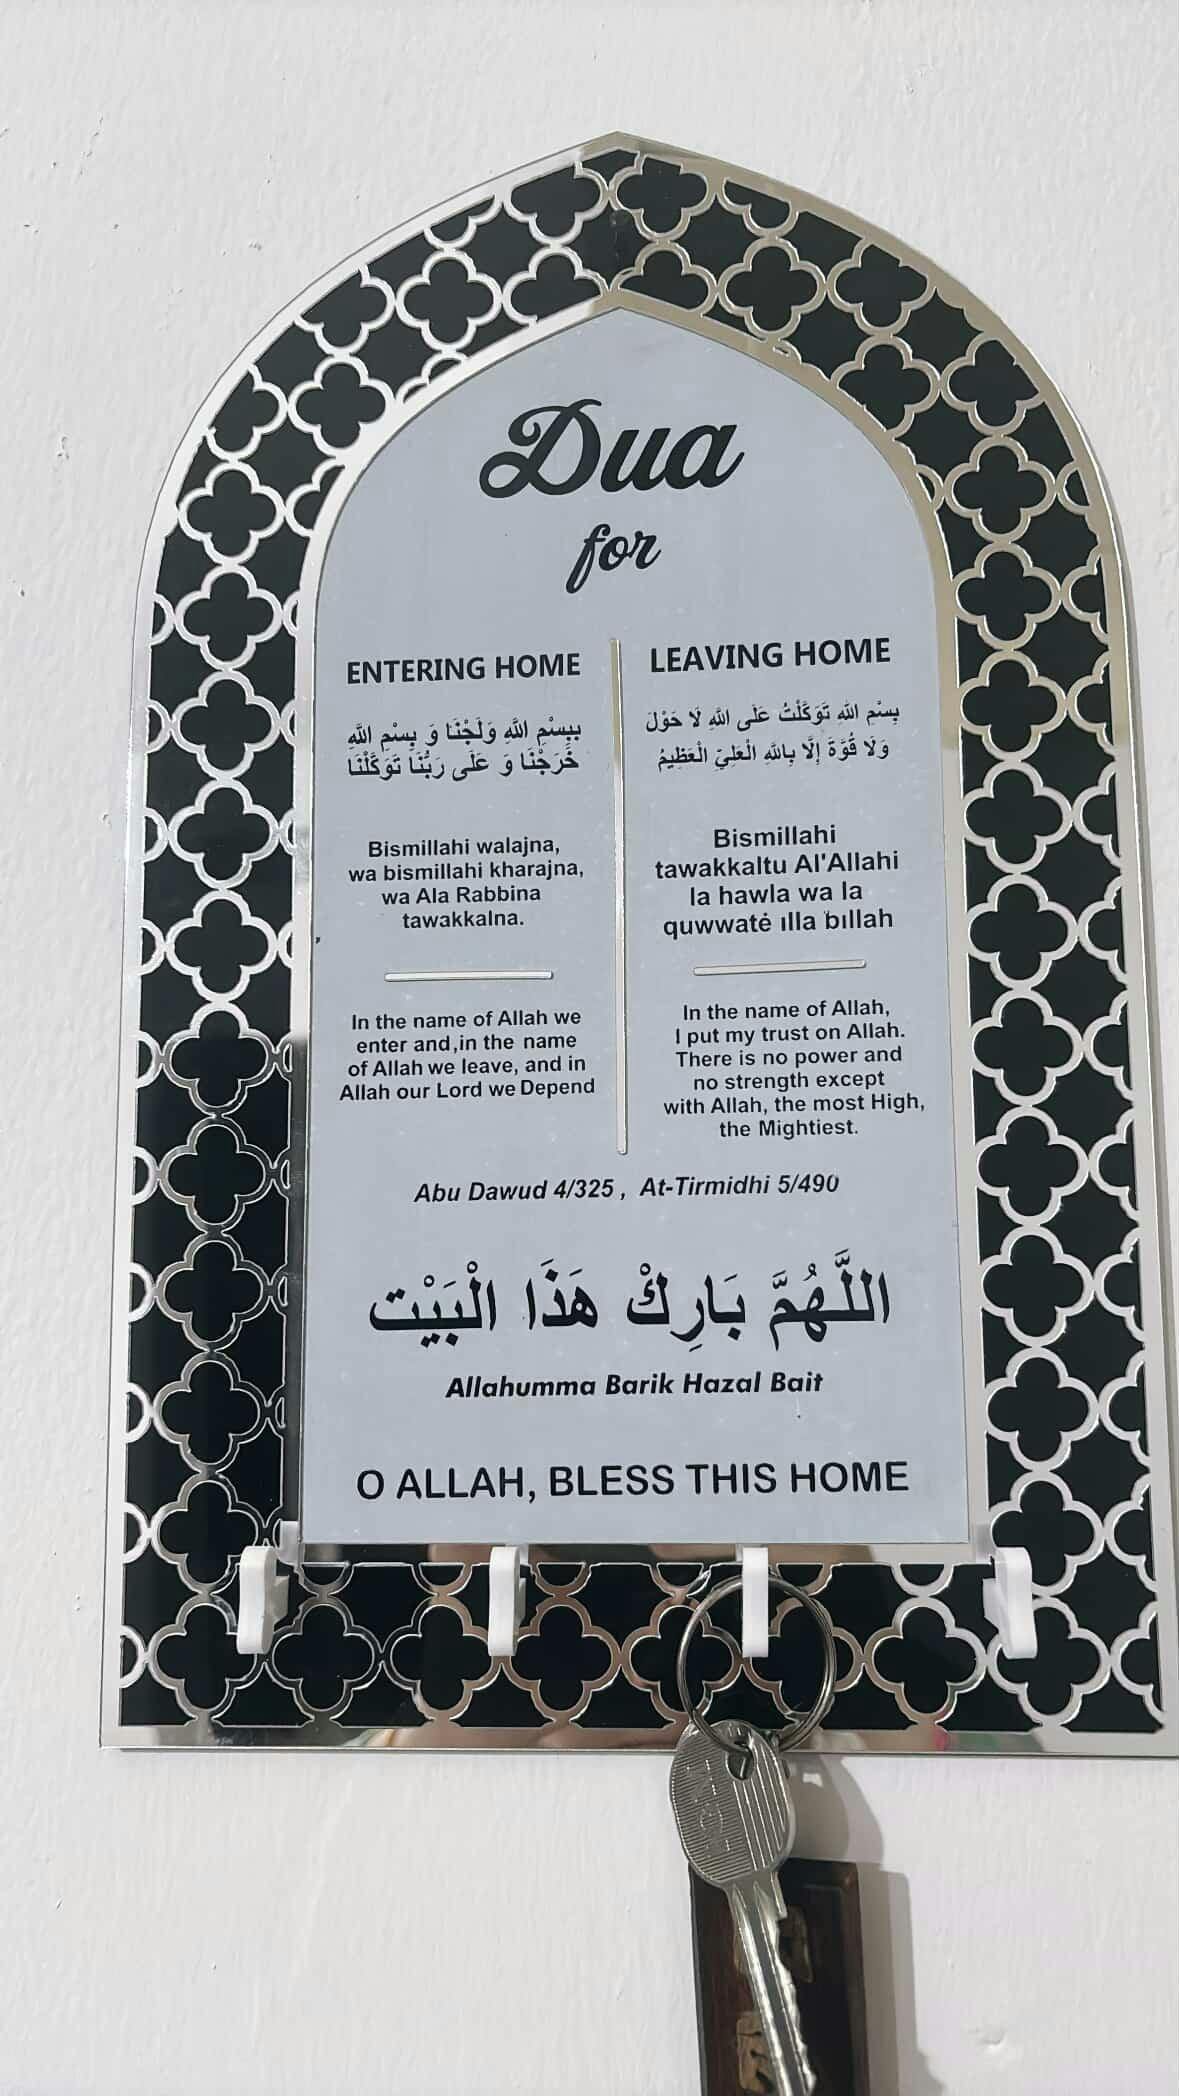 Dua
for
ENTERING HOME
بِسْمِ اللَّهِ وَلَجْنَا وَ بِسْمِ اللَّهِ
خَرَجْنَا وَ عَلَى رَبُّنَا تَوَكَّلْنَا
Bismillahi walajna,
wa bismillahi kharajna,
wa Ala Rabbina
tawakkalna.
In the name of Allah we
enter and,in the name
of Allah we leave, and in
Allah our Lord we Depend
LEAVING HOME
بِسْمِ اللَّهِ تَوَكَّلْتُ عَلَى اللَّهِ لَا حَوْلَ
وَلَا قُوَّةَ إِلَّا بِاللَّهِ الْعَلِيِّ الْعَظِيمُ
Bismillahi
tawakkaltu Al'Allahi
la hawla wa la
quwwatė ılla bıllah
In the name of Allah,
I put my trust on Allah.
There is no power and
no strength except
with Allah, the most High,
the Mightiest.
Abu Dawud 4/325 , At-Tirmidhi 5/490
اللَّهُمَّ بَارِكْ هَذَا الْبَيْت
Allahumma Barik Hazal Bait
O ALLAH, BLESS THIS HOME